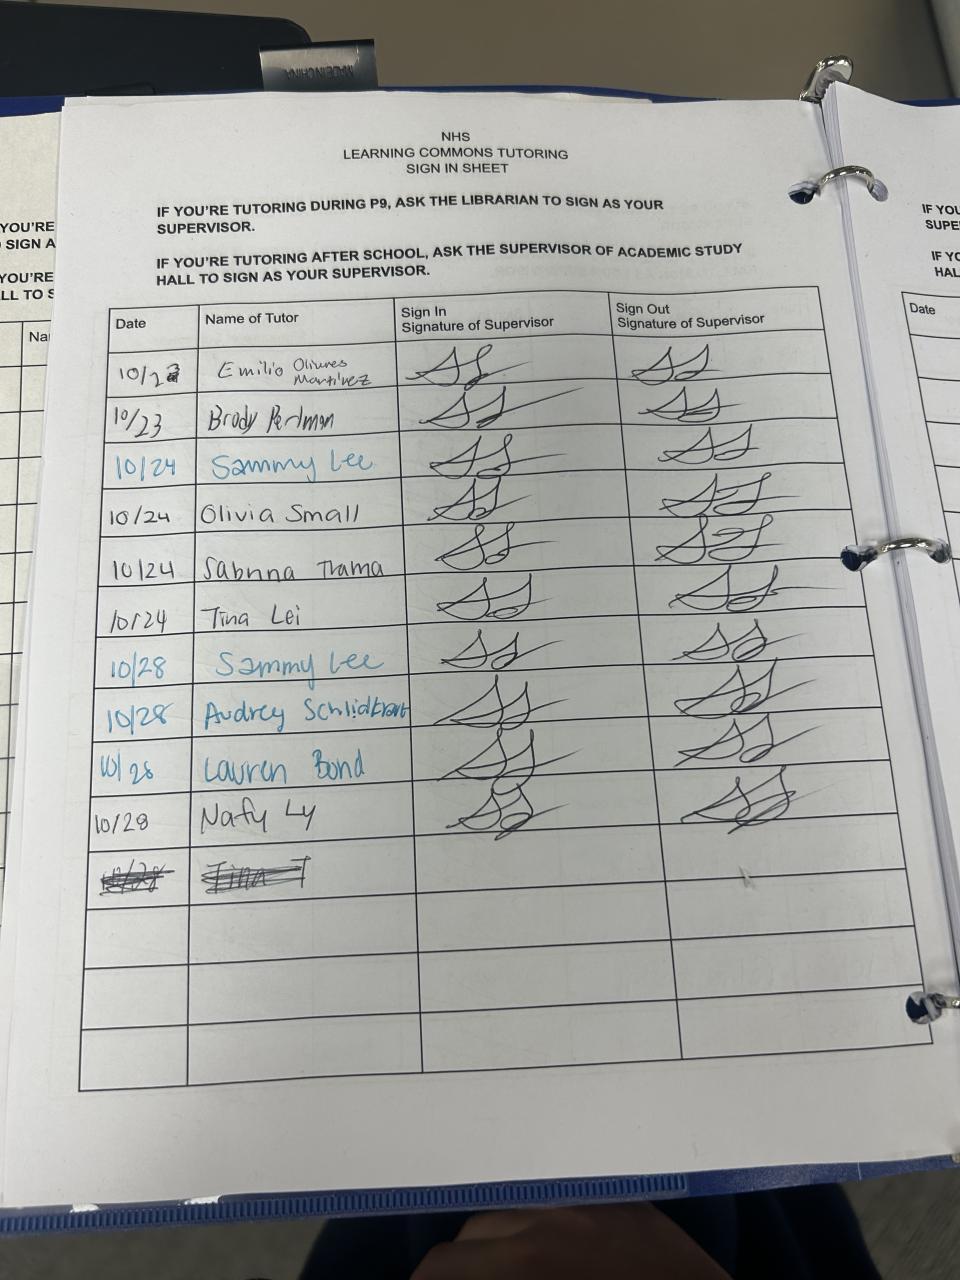 MADE IN CHINA
NHS
LEARNING COMMONS TUTORING
SIGN IN SHEET
IF YOU'RE TUTORING DURING P9, ASK THE LIBRARIAN TO SIGN AS YOUR
SUPERVISOR.
IF YOU'RE TUTORING AFTER SCHOOL, ASK THE SUPERVISOR OF ACADEMIC STUDY
HALL TO SIGN AS YOUR SUPERVISOR.
Date Name of Tutor Sign In Signature of Supervisor Sign Out Signature of Supervisor
Emilio Olivares Martinez
10/23 Brody Perlman
10/24 Sammy Lee
10/24 Olivia Small
10/24 Sabrina Trama
10/24 Tina Lei
10/28 Sammy Lee
10/28 Audrey
10/28 Lauren Bond
10/28 Nafy Ly
10/28 Tina T
YOU'RE
SIGN A
YOU'RE
LL TO S
Na
IF YOU
SUPE
IF YO
HAL
Date